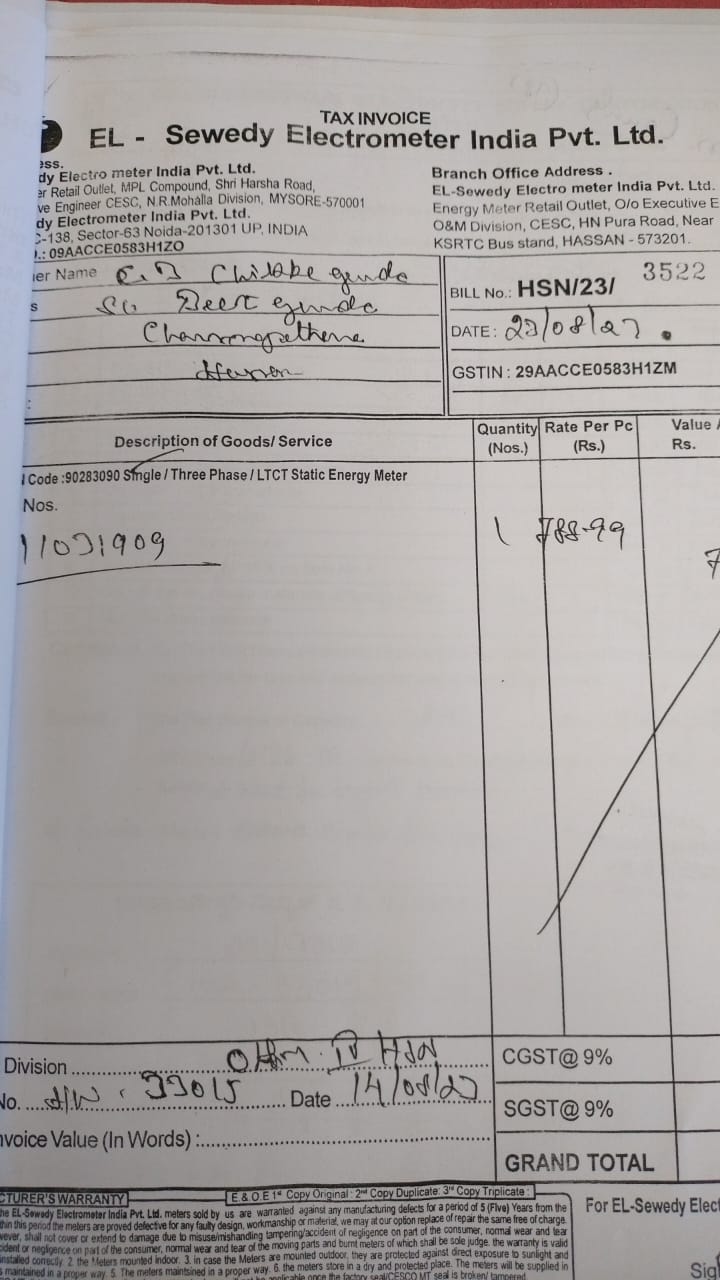 TAX INVOICE
EL - Sewedy Electrometer India Pvt. Ltd.
ess.
dy Electro meter India Pvt. Ltd.
er Retail Outlet, MPL Compound, Shri Harsha Road,
ve Engineer CESC, N.R.Mohalla Division, MYSORE-570001
dy Electrometer India Pvt. Ltd.
C-138, Sector-63 Noida-201301 UP, INDIA
.: 09AACCE0583H1ZO
Branch Office Address .
EL-Sewedy Electro meter India Pvt. Ltd.
Energy Meter Retail Outlet, O/o Executive E
O&M Division, CESC, HN Pura Road, Near
KSRTC Bus stand, HASSAN - 573201.
er Name
s
BILL No.: HSN/23/ 3522
DATE: 23/08/23
GSTIN : 29AACCE0583H1ZM
Description of Goods/ Service
Quantity (Nos.)
Rate Per Pc (Rs.)
Value
Rs.
Code :90283090 Single / Three Phase / LTCT Static Energy Meter
Nos.
11031909
1 788-99
7
Division
HSN
No. 33015 Date 14/08/23
nvoice Value (In Words) :
CGST@ 9%
SGST@ 9%
GRAND TOTAL
CTURER'S WARRANTY
E & O.E 1st Copy Original : 2nd Copy Duplicate: 3rd Copy Triplicate :
he EL-Sewedy Electrometer India Pvt. Ltd. meters sold by us are warranted against any manufacturing defects for a period of 5 (Five) Years from the
thin this period the meters are proved defective for any faulty design, workmanship or material, we may at our option replace of repair the same free of charge.
wever, shall not cover or extend to damage due to misuse/mishandling tampering/accident of negligence on part of the consumer, normal wear and tear
cident or negligence on part of the consumer, normal wear and tear of the moving parts and burnt meters of which shall be sole judge. the warranty is valid
installed correctly. 2. the Meters mounted indoor. 3. in case the Meters are mounted outdoor, they are protected against direct exposure to sunlight and
s maintained in a proper way. 5. The meters maintsined in a proper way. 6. the meters store in a dry and protected place. The meters will be supplied in
applicable once the factory seal/CESCO MT seal is broken/ tampered.
For EL-Sewedy Elect
Sig